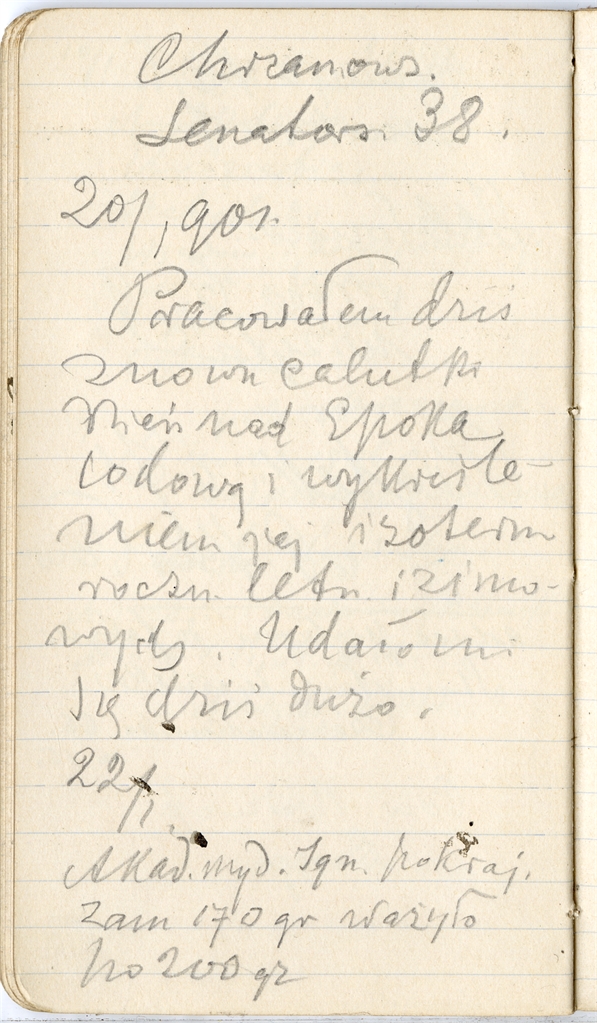 Chrzanows.
Senators. 38.
20/1 901.
Pracowałem dziś
znowu calutki
dzień nad Epoką
lodową i wykreśle-
niem jej izoterm
roczn. letn. i zimo-
wych. Udało mi
się dziś dużo.
22/1.
Akad. myd. Ign. pokraj.
zam 170 gr ważyło
po 200 gr